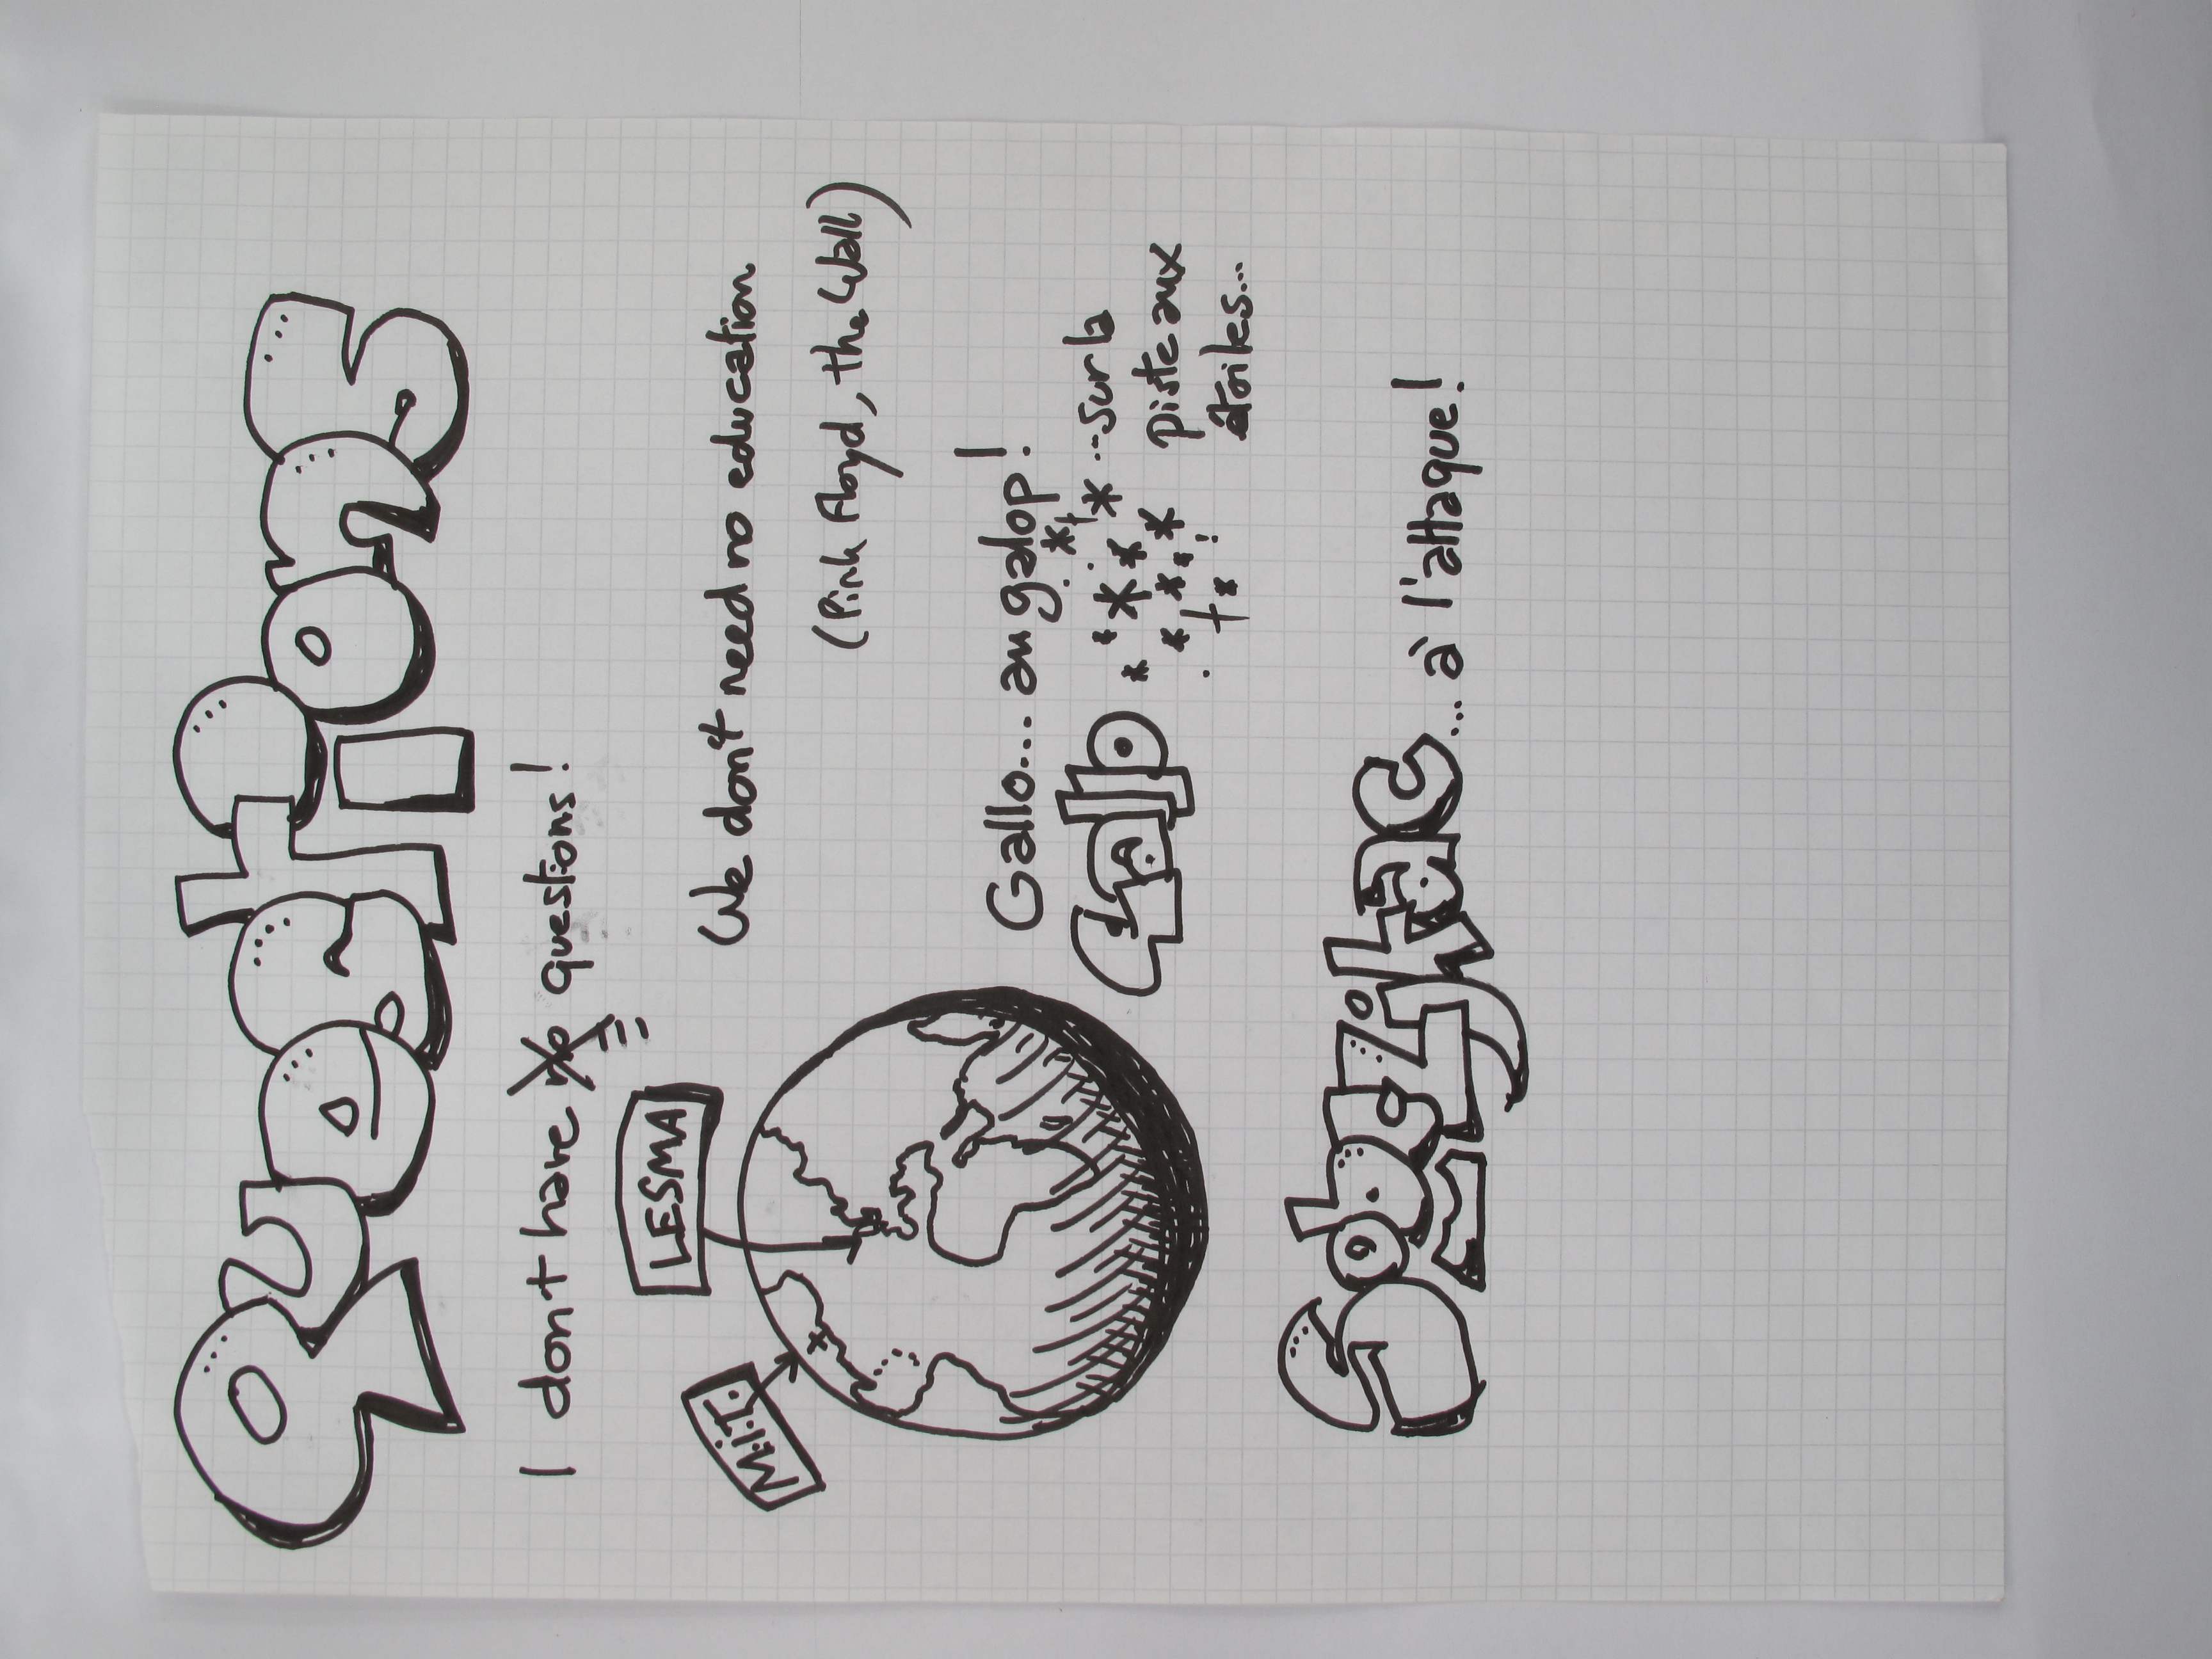 Questions
I don't have no questions!
LESMA
M.I.T.
We don't need no education
(Pink Floyd, the Wall)
Gallo... au galop!
Gallo
...sur la
piste aux
étoiles...
... à l'attaque!